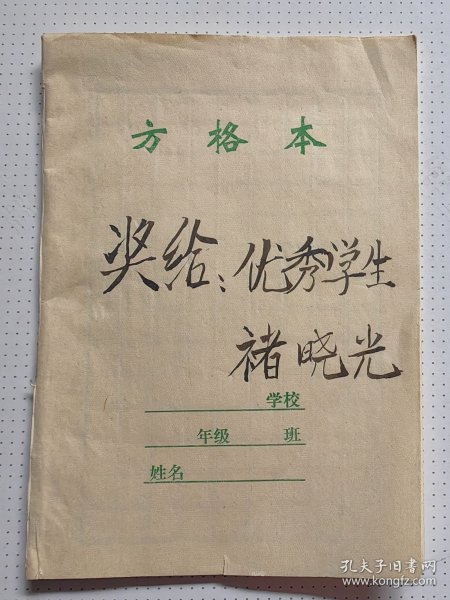 方格本
奖给：优秀学生
褚晓光
学校
年级 班
姓名
孔夫子旧书网
www.kongfz.com